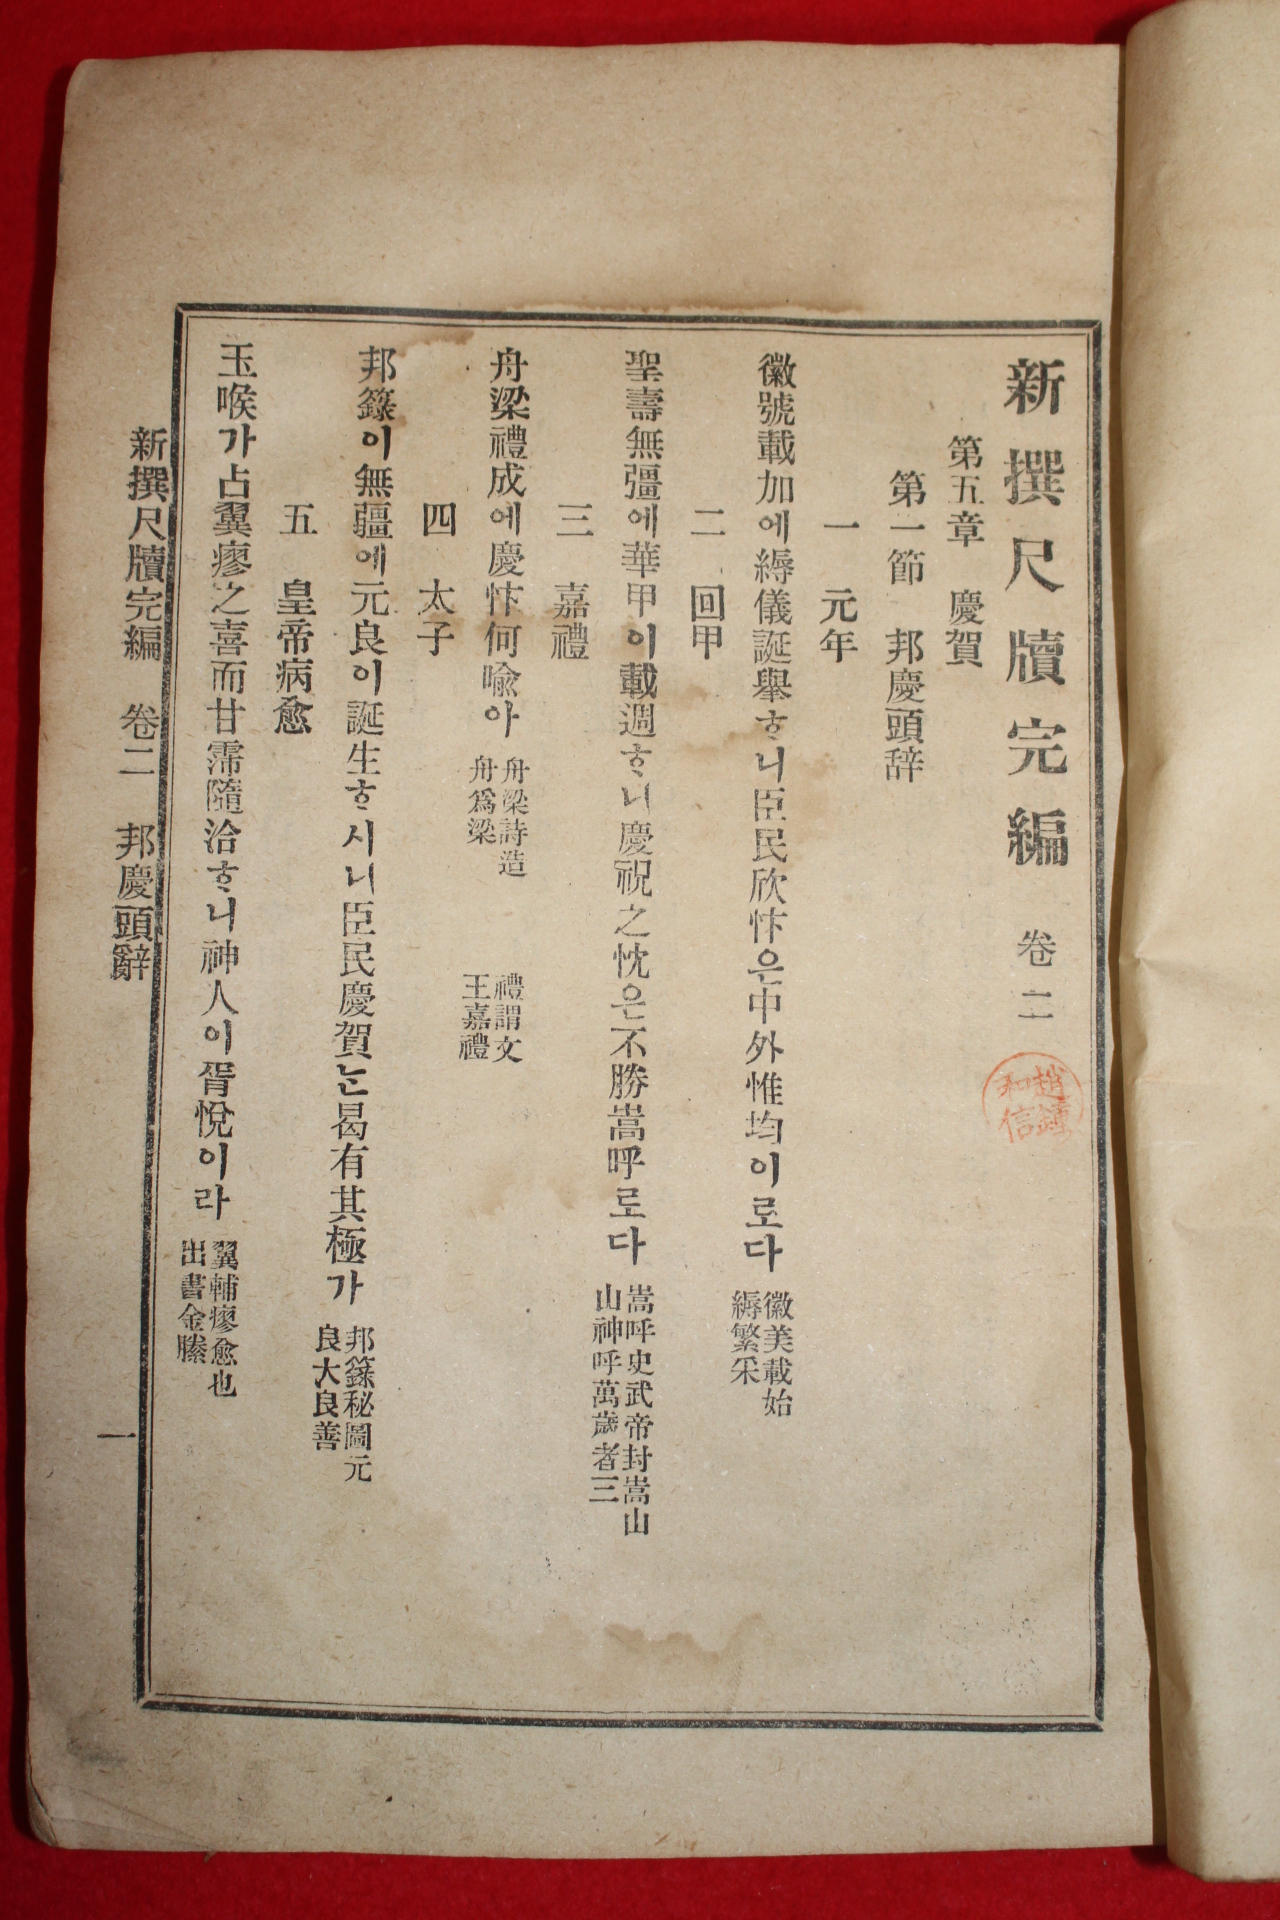 新撰尺牘完編 卷二
趙鍾和信
第五章 慶賀
第一節 邦慶頭辞
一 元年
徽號載加에縟儀誕舉ᄒᆞ니臣民欣忭은中外惟均이로다 徽美載始
縟繁采
二 回甲
聖壽無彊에華甲이載週ᄒᆞ니慶祝之忱은不勝嵩呼로다 嵩呼史武帝封嵩山
山神呼萬歲者三
三 嘉禮
舟梁禮成에慶忭何喩아 舟梁詩造 禮謂文
舟爲梁 王嘉禮
四 太子
邦籙이無疆에元良이誕生ᄒᆞ시니臣民慶賀ᄂᆞᆫ曷有其極가 邦籙秘圖元
良大良善
五 皇帝病愈
玉喉가占翼瘳之喜而甘霈隨洽ᄒᆞ니神人이胥悅이라 翼輔瘳愈也
出書金縢
新撰尺牘完編 卷二 邦慶頭辭 一